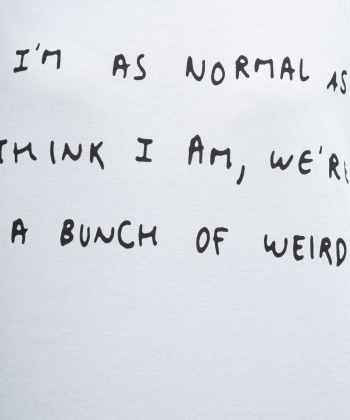 I'M AS NORMAL AS
THINK I AM, WE'RE
A BUNCH OF WEIRD